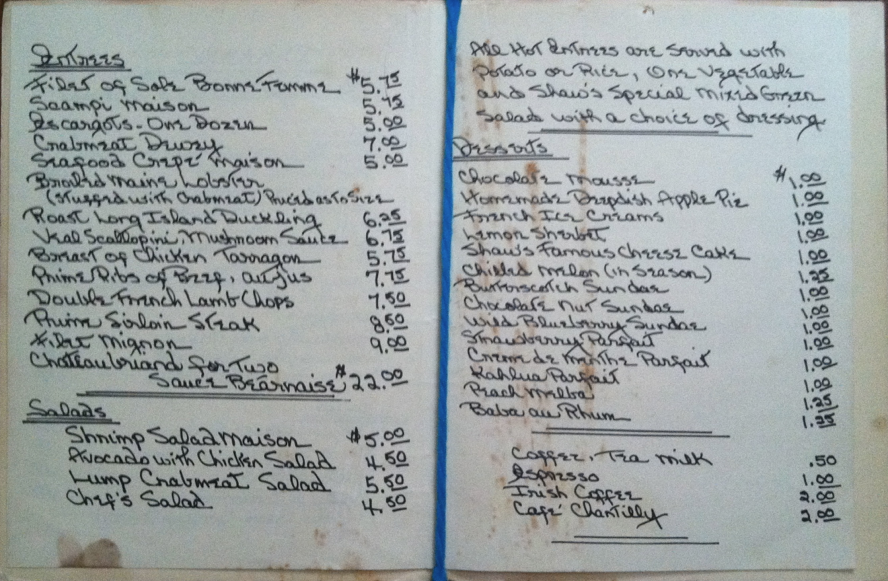 Entrees
Filet of Sole Bonne Femme $5.75
Scampi Maison 5.75
Escargots - One Dozen 5.00
Crabmeat Dewey 7.00
Seafood Crepe Maison 5.00
Broiled Maine Lobster
(stuffed with Crabmeat) Priced as to Size
Roast Long Island Duckling 6.25
Veal Scallopini, Mushroom Sauce 6.75
Breast of Chicken Tarragon 5.75
Prime Ribs of Beef, au jus 7.75
Double French Lamb Chops 7.50
Prime Sirloin Steak 8.50
Filet Mignon 9.00
Chateaubriand for Two
Sauce Bearnaise $22.00
Salads
Shrimp Salad Maison $5.00
Avocado with Chicken Salad 4.50
Lump Crabmeat Salad 5.50
Chef's Salad 4.50
All Hot Entrees are Served with
Potato or Rice, One Vegetable
and Shaw's Special Mixed Green
Salad with a choice of dressing
Desserts
Chocolate Mousse $1.00
Homemade Deepdish Apple Pie 1.00
French Ice Creams 1.00
Lemon Sherbet 1.00
Shaw's Famous Cheese Cake 1.00
Chilled Melon (in Season) 1.25
Butterscotch Sundae 1.00
Chocolate Nut Sundae 1.00
Wild Blueberry Sundae 1.00
Strawberry Parfait 1.00
Creme de Menthe Parfait 1.00
Kahlua Parfait 1.00
Peach Melba 1.25
Baba au Rhum 1.25
Coffee, Tea Milk .50
Espresso 1.00
Irish Coffee 2.00
Café Chantilly 2.00